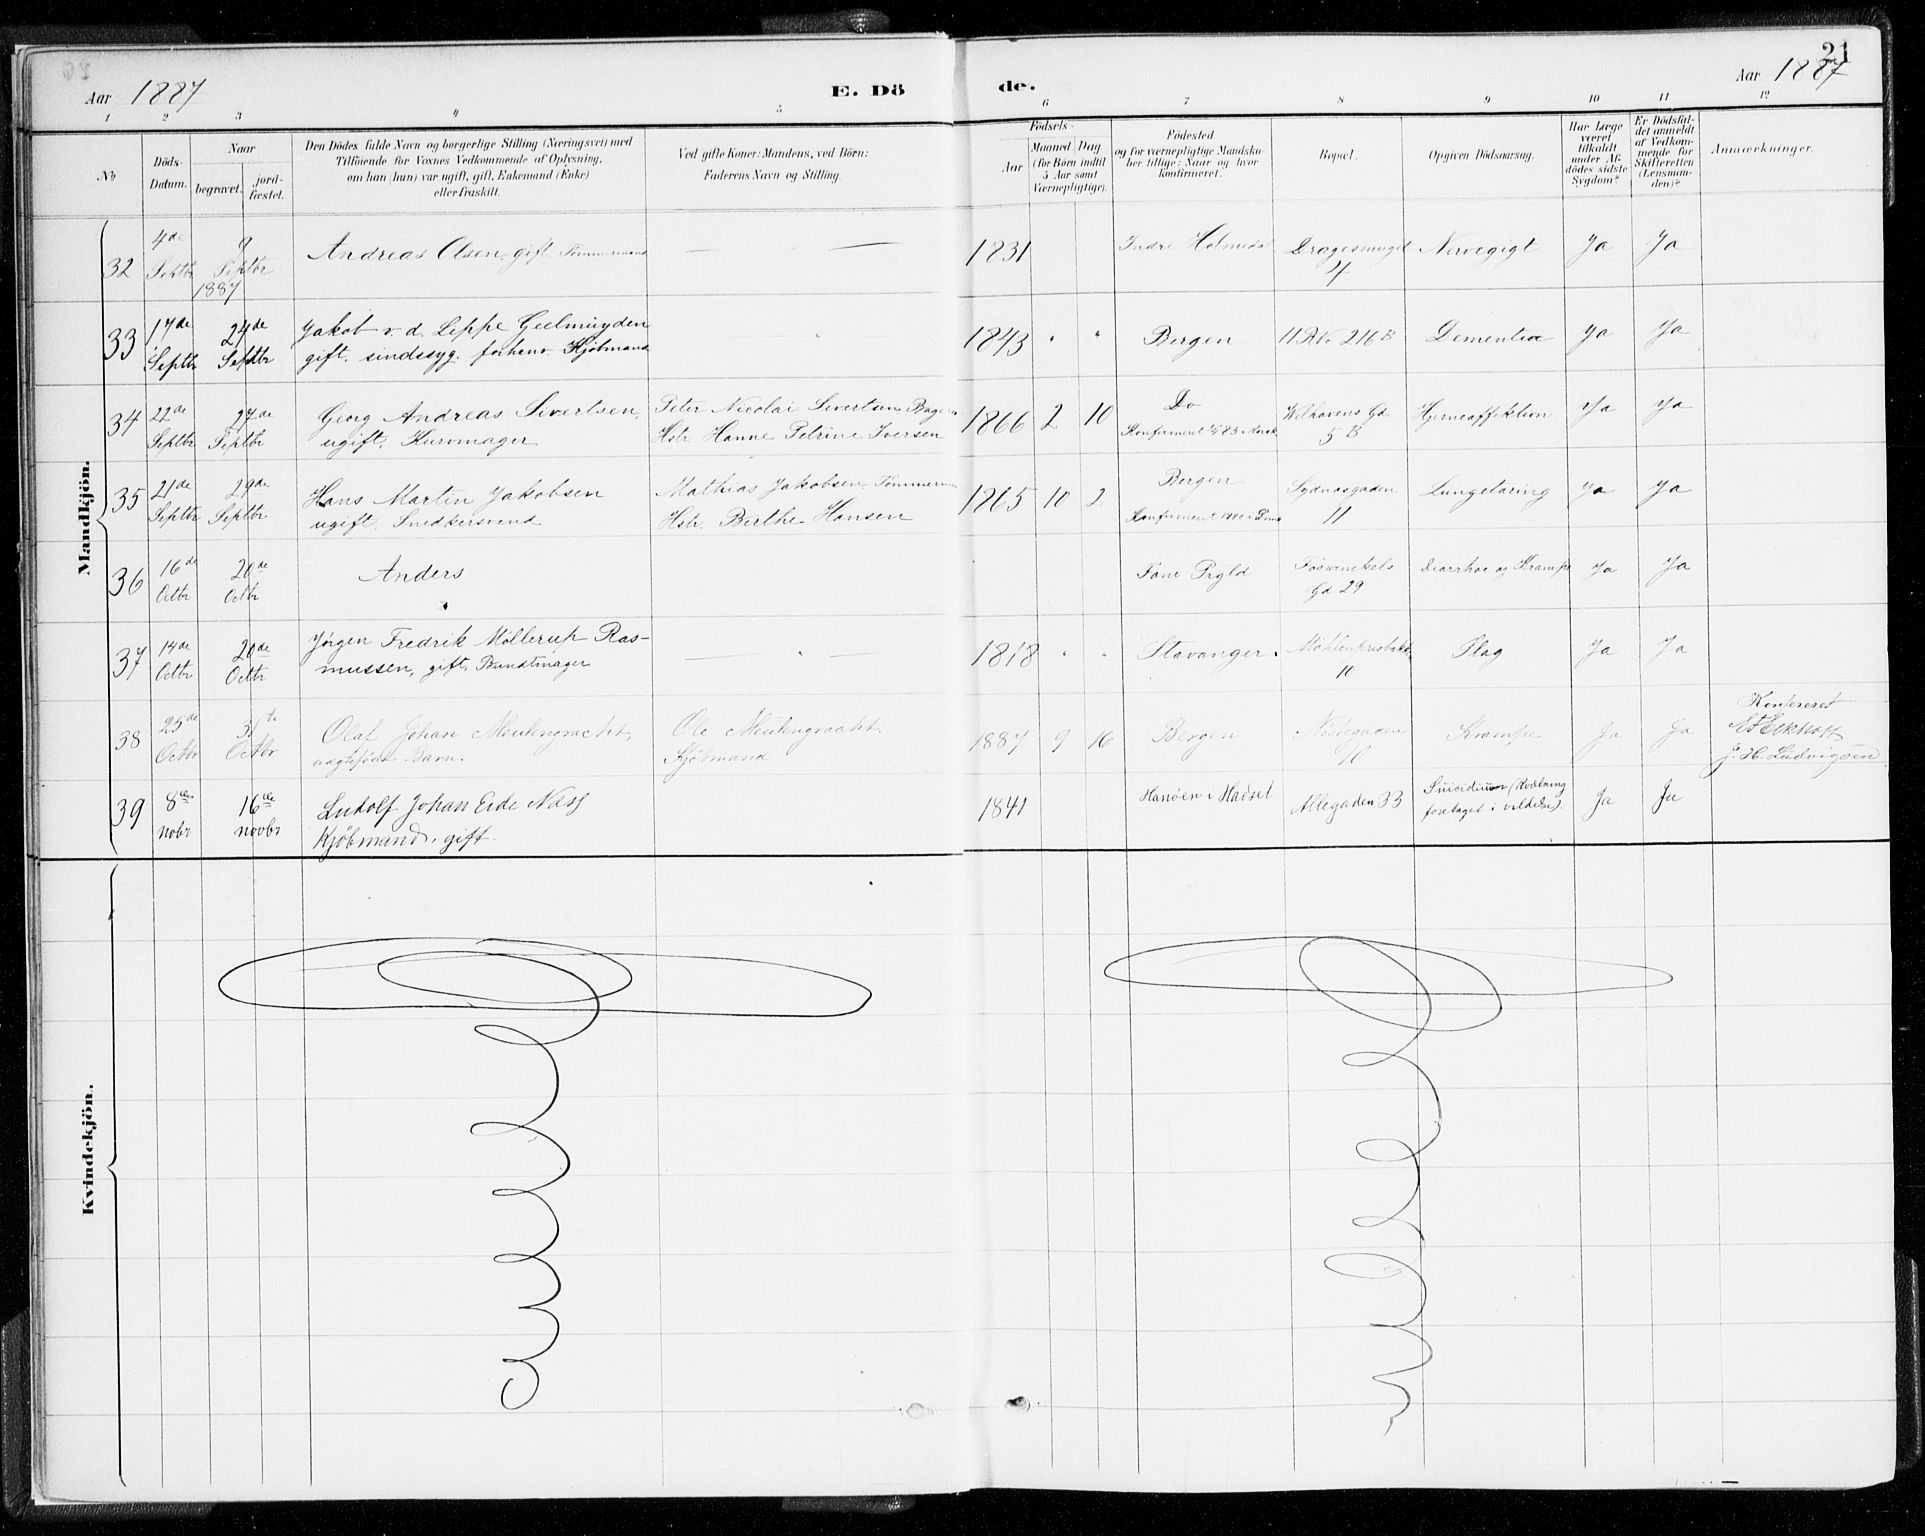 21
Aar 1887
E. Dö
de.
Aar 1887
1 2 3 4 5 6 7 8 9 10 11 12
No
Döds-
Datum.
Naar
begravet.
jord-
fæstet.
Den Dödes fulde Navn og borgerlige Stilling (Næringsvei) med
Tilföiende for Voxnes Vedkommende af Oplysning,
om han (hun) var ugift, gift, Enkemand (Enke)
eller fraskilt.
Ved gifte Koner: Mandens, ved Börn:
Faderens Navn og Stilling.
Födsels-
Aar
Maaned
Dag
(for Börn indtil
5 Aar samt
Værnepligtige).
Födested
og for værnepligtige Mandska-
ber tillige: Naar og hvor
konfirmeret.
Bopæl.
Opgiven Dödsaarsag.
Har Læge
været
tilkaldt
under Af-
dödes sidste
Sygdom?
Er Dödsfal-
det anmeldt
af Vedkom-
mende for
Skifteretten
(Lensman-
den)?
Anmærkninger.
Mandkjön.
32 4de Septbr 9 Septbr 1887 Andreas Olsen, gift, Tömmermand 1831 Indre Holmedal Dragesmuget 4 Nervegigt Ja Ja
33 17de Septbr 24de Septbr Jakob v. d. Lippe Geelmuyden
gift, sindssyg. forhenv. Kjöbmand 1843 " " Bergen 11 R No 216 B Dementia Ja Ja
34 22de Septbr 27de Septbr Georg Andreas Sivertsen,
ugift, Kurvmager Peter Nicolai Sivertsen Bager
Hstr. Hanne Petrine Iversen 1866 2 10 Do
Konfirmeret 83 Welhavens Gd 5 B Hjerneaffektion Ja Ja
35 21de Septbr 29de Septbr Hans Martin Jakobsen
ugift, Snedkersvend Mathias Jakobsen, Tömmerm
Hstr. Berthe Hansen 1865 10 2 Bergen
Konfirmeret Sydnæsgaden 11 Lungetæring Ja Ja
36 16de Octbr 20de Octbr Anders Fane Prgld Gd 29 Diarrhoe og Krampe Ja Ja
37 14de Octbr 20de Octbr Jörgen Fredrik Möllerup Ras-
mussen, gift, Bundtmager 1818 " " Stavanger Möhlenprisbakk 10 Slag Ja Ja
38 25de Octbr 31te Octbr Olaf Johan Meulengracht,
ægteföde Barn. Ole Meulengracht.
Kjöbmand 1887 9 16 Bergen Nöstegaden 10 Krampe Ja Ja Konfereret
J. H. Ludvigsen
39 8de Novbr 16de Novbr Ludolf Johan Eide Næss
Kjöbmand, gift. 1841 Hanöen i Hadsel Allegaden 33 Suicidium (Kvælning
foretaget i vildelse) Ja Ja
Kvindekjön.